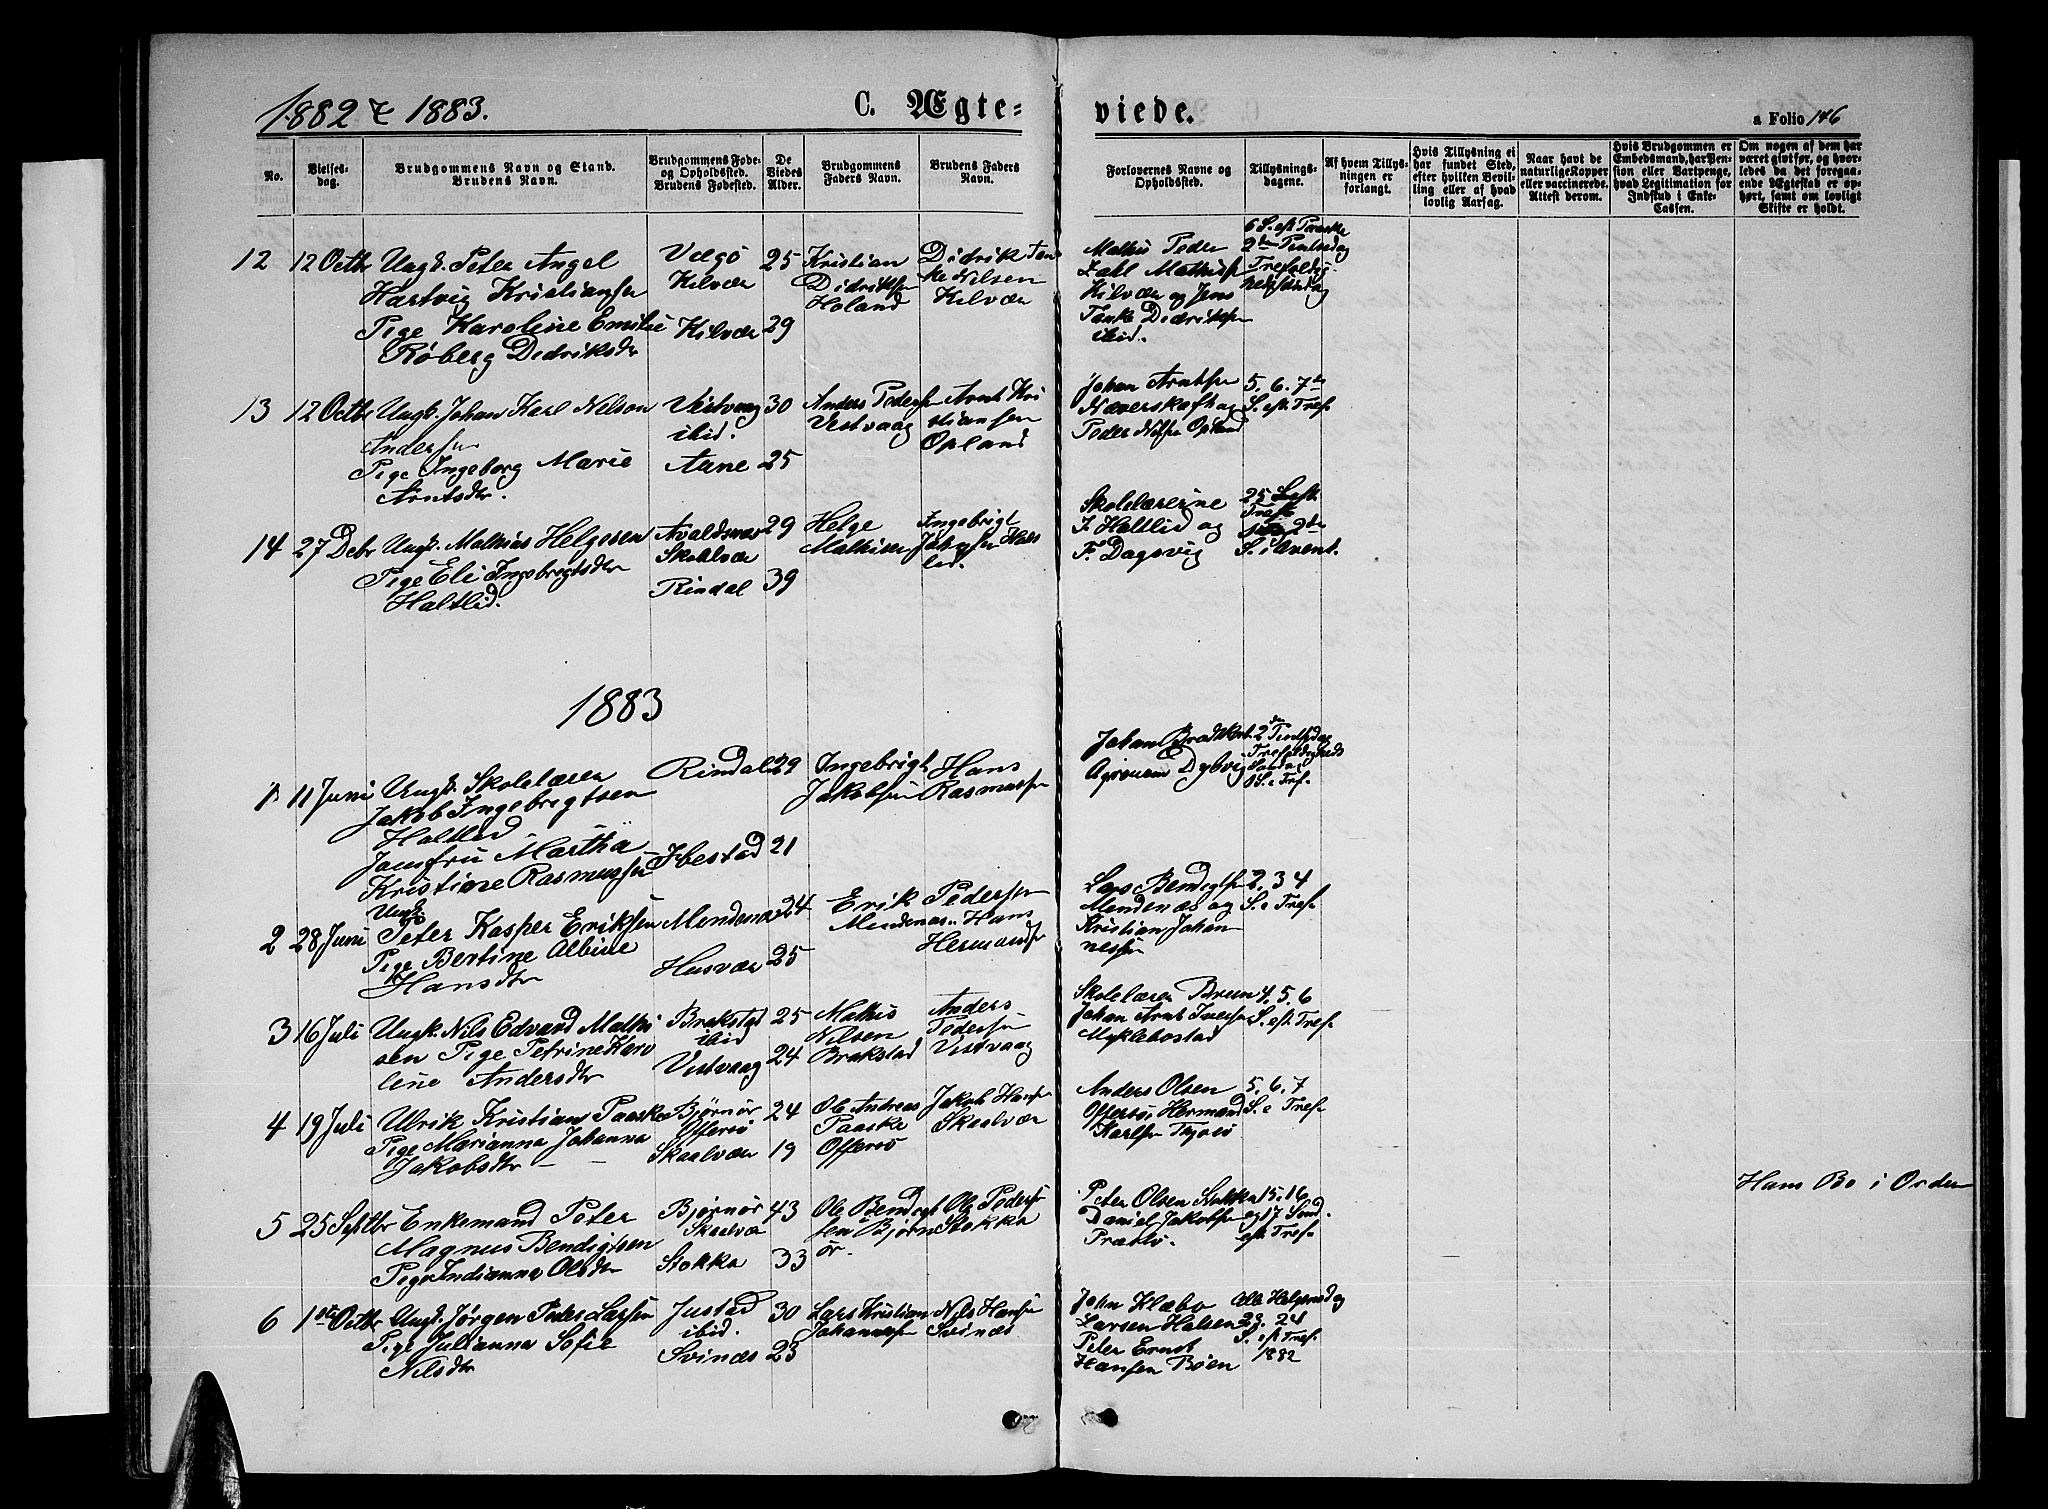 1882 & 1883.
C. Ægte=
viede.
a Folio 146
No.
Vielses-
dag.
Brudgommens Navn og Stand.
Brudens Navn.
Brudgommens Føde-
og Opholdssted.
Brudens Fødested.
De
Viedes
Alder.
Brudgommens
Faders Navn.
Brudens Faders
Navn.
Forlovernes Navne og
Opholdssted.
Tillysnings-
dagene.
Af hvem Tillys-
ningen er
forlangt.
Hvis Tillysning ei
har fundet Sted,
efter hvilken Bevil-
ling eller af hvad
lovlig Aarsag.
Naar havt de
naturlige Kopper
eller vaccinerede.
Attest derom.
Hvis Brudgommen er
Embedsmand, har Pen-
sion eller Vartpenge,
hvad Legitimation for
Indskud i Enke-
Cassen.
Om nogen af dem har
været gift før, og hvor-
ledes da det foregaa-
ende Ægteskab er op-
hørt, samt om lovligt
Skifte er holdt.
12
12 Octbr
Ungk. Peter Angel
Hartvig Kristiansen
Pige Karoline Emilie
Røberg Dedriksdr
Vægø
Kilvær
Kilvær
25
29
Kristian
Didriksen
Holand
Didrik Tan
ke Nilsen
Kilvær
Mathis Peder
Dahl Mathisen
Kilvær og Jens
Tanke Didriksen
ibid.
6 S. eft Paaske
2den Pintsedag
Trefoldig
hedssøndag
13
12 Octbr
Ungk. Johan Karl Nilson
Andersen
Pige Ingeborg Marie
Arntsdr.
Vestvaag
ibid.
Aune
30
25
Anders Pedersen
Vestvaag
Arnt Kri
stiansen
Opland
Johan Arntsen
Næverskaft og
Peder Nilsen Opland
5. 6. 7de
S. eft. Tref.
14
27 Debr
Ungk. Mathias Helgesen
Pige Eli Ingebrigtsdr
Haltlid.
Avaldsnes
Skaalvær
Rindal
29
39
Helge
Mathisen
Ingebrigt
Jakobsen Halt
lid.
Skolelærerne
J. Haltlid og
F. Dagsvig
25 S. eft.
Tref.
2den
S. i Avent.
1883
1
11 Juni
Ungk. Skolelærer
Jakob Ingebrigtsen
Haltlid
Jomfru Martha
Kristiane Rasmussen
Rindal
Ibestad
29
21
Ingebrigt
Jakobsen
Hans
Rasmussen
Johan Brodtkorb
Agronom Dybvig
2den Pintsedag
Trefoldigheds
Søndag
S. e Tref.
2
28 Juni
Ungk
Peter Kasper Eriksen
Pige Bertine Albine
Hansdtr
Mindenæs
Husvær
24
25
Erik Pedersen
Mindenæs
Hans
Hermansen
Lars Bendigtsen
Mendenæs og
Kristian Johan
nessen
2. 3 4
S. e Tref.
3
16 Juli
Ungk. Nils Edvard Mathi
sen Pige Petrine Karo
line Andersdtr
Brakstad
ibid
Vestvaag
25
24
Mathis
Nilsen
Brakstad
Anders
Pedersen
Vestvaag
Skolelærer Brun
Johan Arnt Iversen
Myklebostad
4. 5. 6
S. eft Tref.
4
19 Juli
Ulrik Kristian Paaske
Pige Marianna Johanna
Jakobsdtr
Bjørnør
Offersø
Skaalvær
24
19
Ole Andreas
Paaske
Offersø
Jakob Hansen
Skaalvær
Anders Olsen
Offersø, Hermand
Karlsen Tjøtsø
5. 6. 7
S. e Tref.
5
25 Septbr
Enkemand Peter
Magnus Bendigtsen
Pige Indianna Olsdtr
Bjørnør
Skaalvær
Stokka
43
33
Ole Bendigt
sen Bjørn
ør.
Ole Pedersen
Stokka
Peter Olsen Stokka
Daniel Jakobsen
Præstø.
15. 16
og 17 Sønd.
eft Tref.
Hans Bo i Orden
6
1ste Octbr
Ungk. Jørgen Peder Larsen
Pige Julianna Sofie
Nilsdtr
Justad
ibid.
Svinæs
30
23
Lars Kristian
Johannesen
Nils Hansen
Svinæs
John Klæbo
Larsen Halsen
Peter Ernst
Hansen Bøen
Alle Helgensdag
23. 24
S. eft Tref.
1882